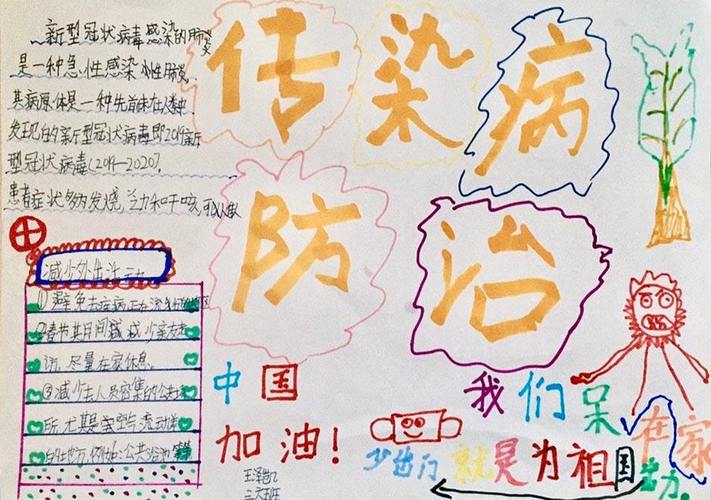 传染病
防治
新型冠状病毒感染的肺炎
是一种急性感染性肺炎
其病原体是一种先前未在人类中
发现的新型冠状病毒即2019新
型冠状病毒(2019-2020)。
患者症状多为发烧,乏力和干咳,
减少外出活动
①避免去疾病正在流行的地区
②春节其日间 减少亲友
访,尽量在家休息。
③减少去人员密集的公共场
所尤其是空气流动
的地方,例如:公共浴池
中国
加油!
我们呆在家
少出门 就是为祖国
三六班